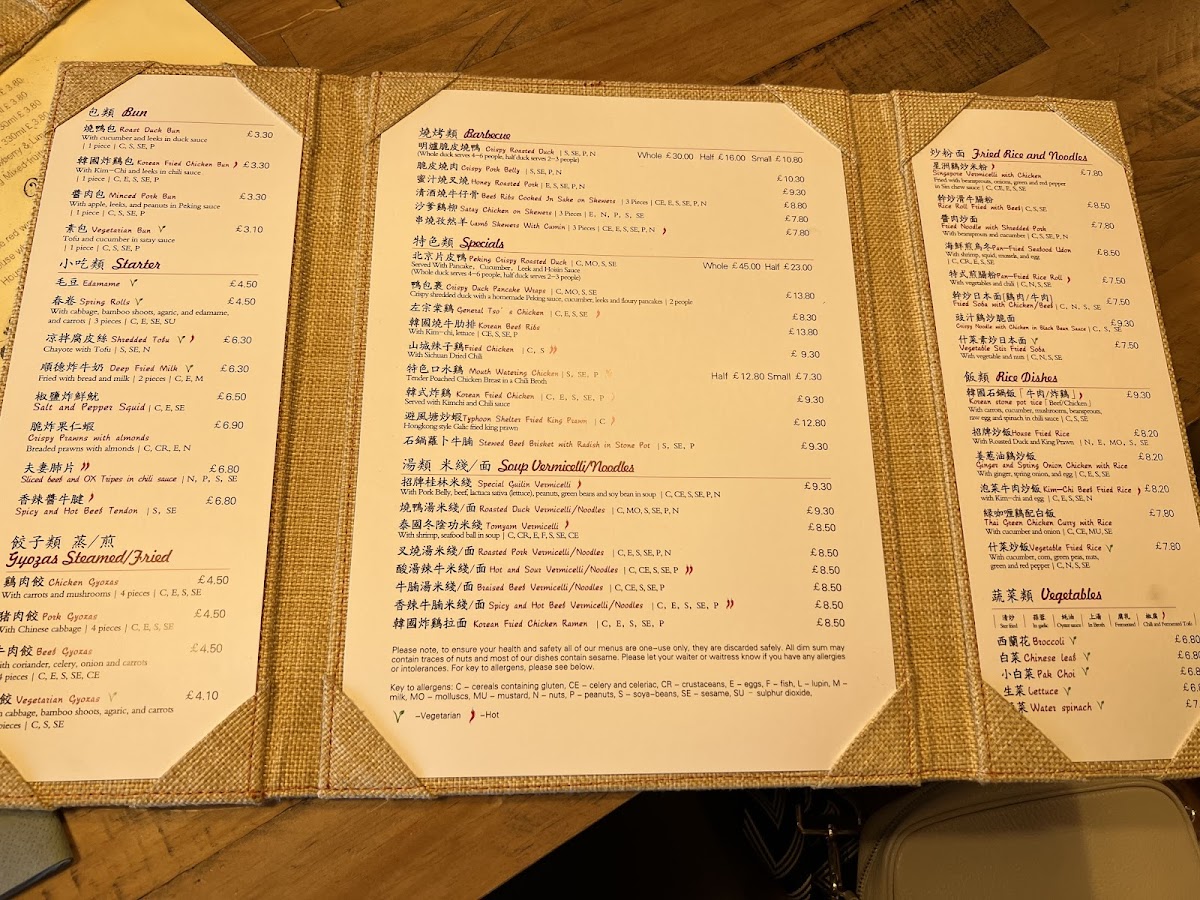 包類 Bun
燒鴨包 Roast Duck Bun £3.30
With cucumber and leeks in duck sauce
| 1 piece | C, S, SE, P
韓國炸鷄包 Korean Fried Chicken Bun £3.30
With Kim-Chi and leeks in chili sauce
| 1 piece | C, E, S, SE, P
醬肉包 Minced Pork Bun £3.30
With apple, leeks, and peanuts in Peking sauce
| 1 piece | C, S, SE, P
素包 Vegetarian Bun £3.10
Tofu and cucumber in satay sauce
| 1 piece | C, S, SE, P
小吃類 Starter
毛豆 Edamame £4.50
春卷 Spring Rolls £4.50
With cabbage, bamboo shoots, agaric, and edamame,
and carrots | 3 pieces | C, E, SE, SU
涼拌腐皮絲 Shredded Tofu £6.30
Chayote with Tofu | S, SE, N
順德炸牛奶 Deep Fried Milk £6.30
Fried with bread and milk | 2 pieces | C, E, M
椒鹽炸鮮魷 £6.50
Salt and Pepper Squid | C, E, SE
脆炸果仁蝦 £6.90
Crispy Prawns with almonds
Breaded prawns with almonds | C, CR, E, N
夫妻肺片 £6.80
Sliced beef and OX Tripes in chili sauce | N, P, S, SE
香辣醬牛腱 £6.80
Spicy and Hot Beef Tendon | S, SE
餃子類 蒸/煎
Gyozas Steamed/Fried
鷄肉餃 Chicken Gyozas £4.50
With carrots and mushrooms | 4 pieces | C, E, S, SE
豬肉餃 Pork Gyozas £4.50
With Chinese cabbage | 4 pieces | C, E, S, SE
牛肉餃 Beef Gyozas £4.50
coriander, celery, onion and carrots
4 pieces | C, E, S, SE, CE
餃 Vegetarian Gyozas £4.10
cabbage, bamboo shoots, agaric, and carrots
pieces | C, S, SE
燒烤類 Barbecue
明爐脆皮燒鴨 Crispy Roasted Duck | S, SE, P, N Whole £30.00 Half £16.00 Small £10.80
(Whole duck serves 4-6 people, half duck serves 2-3 people)
脆皮燒肉 Crispy Pork Belly | S, SE, P, N £10.30
蜜汁燒叉燒 Honey Roasted Pork | E, S, SE, P, N £9.30
清酒燒牛仔骨 Beef Ribs Cooked In Sake on Skewers | 3 Pieces | CE, E, S, SE, P, N £8.80
沙爹鷄柳 Satay Chicken on Skewers | 3 Pieces | E, N, P, S, SE £7.80
串燒孜然羊 Lamb Skewers With Cumin | 3 Pieces | CE, E, S, SE, P, N £7.80
特色類 Specials
北京片皮鴨 Peking Crispy Roasted Duck | C, MO, S, SE Whole £45.00 Half £23.00
Served With Pancake, Cucumber, Leek and Hoisin Sauce
(Whole duck serves 4-6 people, half duck serves 2-3 people)
鴨包裹 Crispy Duck Pancake Wraps | C, MO, S, SE £13.80
Crispy shredded duck with a homemade Peking sauce, cucumber, leeks and floury pancakes | 2 people
左宗棠鷄 General Tso's Chicken | C, E, S, SE £8.30
韓國燒牛肋排 Korean Beef Ribs £13.80
With Kim-chi, lettuce | CE, S, SE, P, N
山城辣子鷄Fried Chicken | C, S £9.30
With Sichuan Dried Chili
特色口水鷄 Mouth Watering Chicken | S, SE, P Half £12.80 Small £7.30
Tender Poached Chicken Breast in a Chili Broth
韓式炸鷄 Korean Fried Chicken | C, E, S, SE, P £9.30
Served with Kimchi and Chili sauce
避風塘炒蝦Typhoon Shelter Fried King Prawn | C £12.80
Hongkong style Galic fried king prawn
石鍋蘿卜牛腩 Stewed Beef Brisket with Radish in Stone Pot | S, SE, P £9.30
湯類 米綫/面 Soup Vermicelli/Noodles
招牌桂林米綫 Special Guilin Vermicelli £9.30
With Pork Belly, beef, lactuca sativa (lettuce), peanuts, green beans and soy bean in soup | C, CE, S, SE, P, N
燒鴨湯米綫/面 Roasted Duck Vermicelli/Noodles | C, MO, S, SE, P, N £9.30
泰國冬陰功米綫 Tomyam Vermicelli £8.50
With shrimp, seafood ball in soup | C, CR, E, F, S, SE, CE
叉燒湯米綫/面 Roasted Pork Vermicelli/Noodles | C, E, S, SE, P, N £8.50
酸湯辣牛米綫/面 Hot and Sour Vermicelli/Noodles | C, CE, S, SE, P £8.50
牛腩湯米綫/面 Braised Beef Vermicelli/Noodles | C, CE, S, SE, P £8.50
香辣牛腩米綫/面 Spicy and Hot Beef Vermicelli/Noodles | C, E, S, SE, P £8.50
韓國炸鷄拉面 Korean Fried Chicken Ramen | C, E, S, SE, P £8.50
Please note, to ensure your health and safety all of our menus are one-use only, they are discarded safely. All dim sum may
contain traces of nuts and most of our dishes contain sesame. Please let your waiter or waitress know if you have any allergies
or intolerances. For key to allergens, please see below.
Key to allergens: C – cereals containing gluten, CE – celery and celeriac, CR – crustaceans, E – eggs, F – fish, L – lupin, M –
milk, MO – molluscs, MU – mustard, N – nuts, P – peanuts, S – soya-beans, SE – sesame, SU – sulphur dioxide,
-Vegetarian -Hot
炒粉面 Fried Rice and Noodles
星洲鷄炒米粉 £7.80
Singapore Vermicelli with Chicken
Fried with beansprouts, onions, green and red pepper
in Sin chew sauce | C, CE, E, S, SE
幹炒滑牛腸粉 £8.50
Rice Roll Fried with Beef| C, S, SE
醬肉炒面
Fried Noodle with Shredded Pork £7.80
With beansprouts and cucumber | C, S, SE, P, N
海鮮煎烏冬Pan-Fried Seafood Udon £8.50
With shrimp, squid, mussels, and egg
| C, CR, E, S, SE
特式煎腸粉Pan-Fried Rice Roll £7.50
With vegetables and chili | C, N, S, SE
幹炒日本面[鷄肉/牛肉] £7.50
Fried Soba with Chicken/Beef| C, N, S, SE
豉汁鷄炒脆面 £9.30
Crispy Noodle with Chicken in Black Bean Sauce | C, S, SE
什菜素炒日本面 £7.50
Vegetable Stir Fried Soba
With vegetable and nuts | C, N, S, SE
飯類 Rice Dishes
韓國石鍋飯「牛肉/炸鷄」 £9.30
Korean stone pot rice「Beef/Chicken」
With carrots, cucumber, mushrooms, beansprouts,
raw egg and spinach in chili sauce | C, S, SE
招牌炒飯House Fried Rice £8.20
With Roasted Duck and King Prawn | N, E, MO, S, SE
姜蔥油鷄炒飯 £8.20
Ginger and Spring Onion Chicken with Rice
With ginger, spring onion, and egg | C, E, S, SE
泡菜牛肉炒飯Kim-Chi Beef Fried Rice £8.20
with Kim-chi and egg | C, E, S, SE, N
綠咖喱鷄配白飯 £7.80
Thai Green Chicken Curry with Rice
With cucumber and onion | C, CE, MU, SE
什菜炒飯Vegetable Fried Rice £7.80
With cucumber, corn, green peas, nuts,
green and red pepper | C, N, S, SE
蔬菜類 Vegetables
清炒 | 蒜蓉 | 蚝油 | 上湯 | 腐乳 | 椒腐
Stir fried | In garlic | Oyster sauce | In Broth | Fermented | Chili and Fermented Tofu
西蘭花 Broccoli £6.80
白菜 Chinese leaf £6.8
小白菜 Pak Choi £6.8
生菜 Lettuce £6.
菜 Water spinach £7.